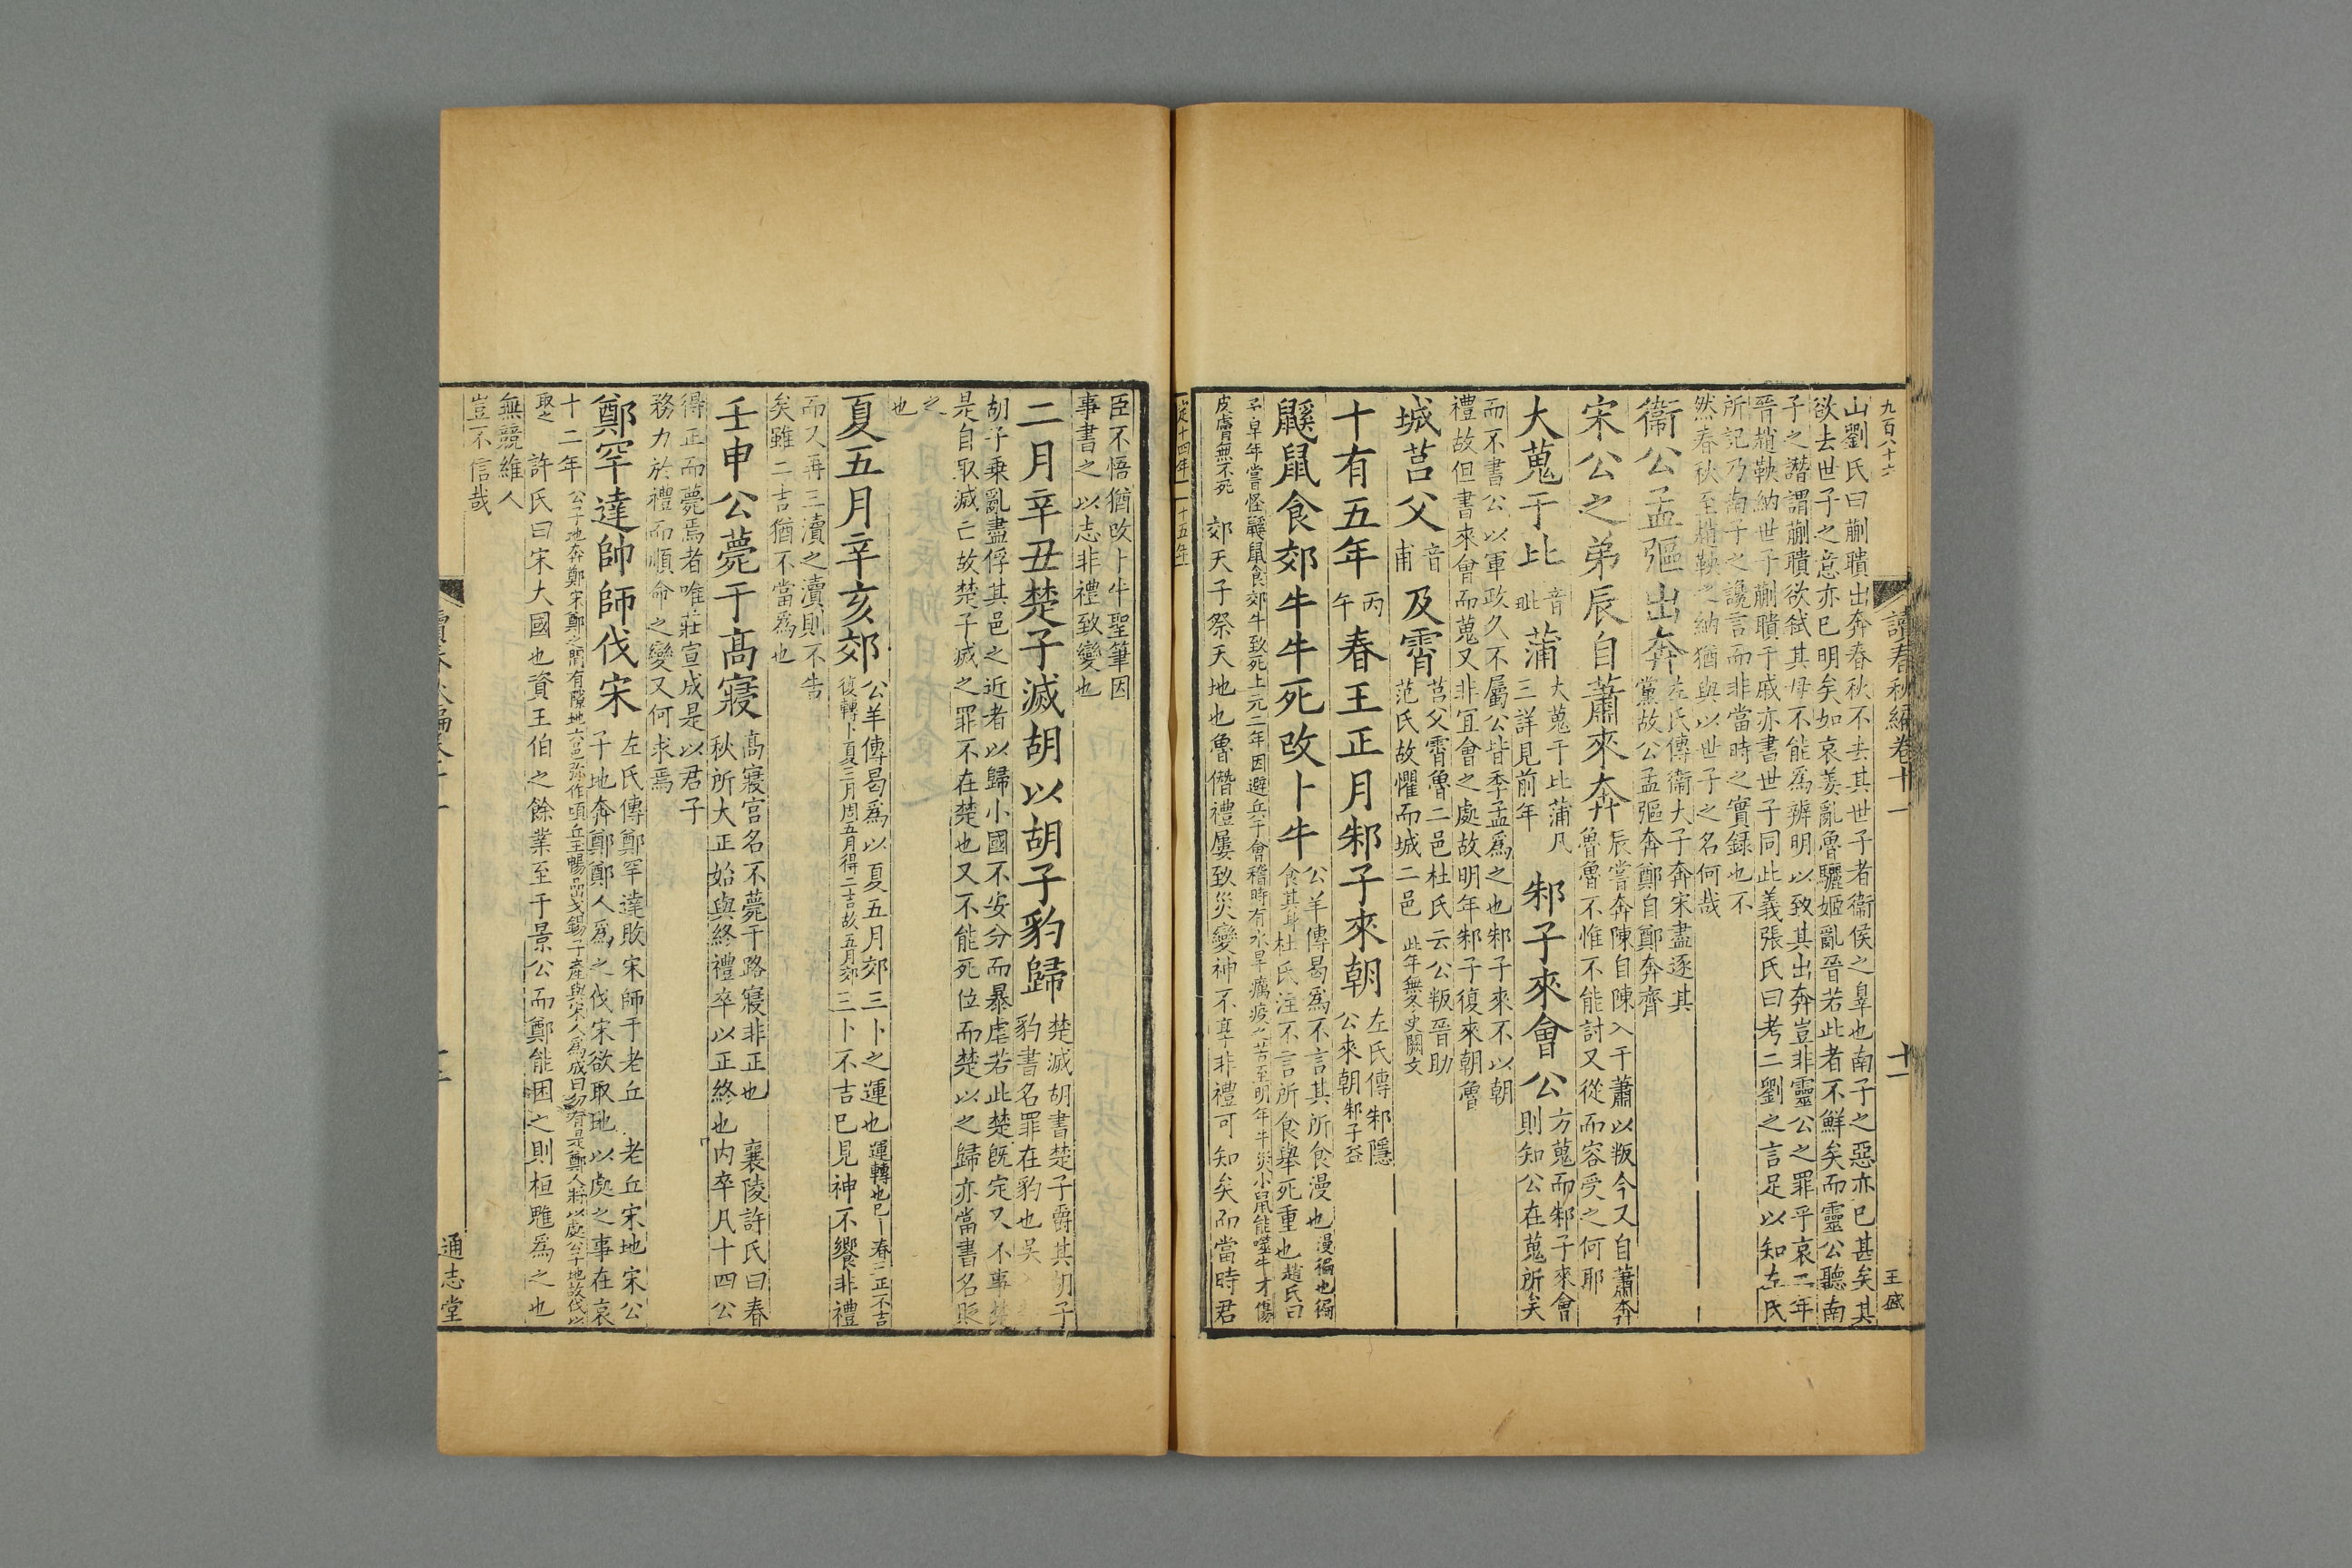 九百八十六
讀春秋編卷十一
十一
王盛
山劉氏曰蒯聵出奔春秋不去其世子者衞侯之辠也南子之惡亦巳甚矣其
欲去世子之意亦巳明矣如哀姜亂魯驪姬亂晉若此者不鮮矣而靈公聽南
子之譖謂蒯聵欲弑其母不能爲辨明以致其出奔豈非靈公之罪乎哀二年
晉趙鞅納世子蒯聵于戚亦書世子同此義張氏曰考二劉之言足以知左氏
所記乃南子之讒言而非當時之實録也不
然春秋至趙鞅之納猶與以世子之名何哉
衞公孟彄出奔
左氏傳衞大子奔宋盡逐其
黨故公孟彄奔鄭自鄭奔齊
宋公之弟辰自蕭來奔
辰嘗奔陳自陳入于蕭以叛今又自蕭奔
魯魯不惟不能討又從而容受之何耶
大蒐于比
音
毗
蒲
大蒐于比蒲凡
三詳見前年
邾子來會公
方蒐而邾子來會
則知公在蒐所矣
而不書公以軍政久不屬公皆季孟爲之也邾子來不以朝
禮故但書來會而蒐又非宜會之處故明年邾子復來朝魯
城莒父
音
甫
及霄
莒父霄魯二邑杜氏云公叛晉助
范氏故懼而城二邑
此年無冬史闕文
十有五年
丙
午
春王正月邾子來朝
左氏傳邾隱
公來朝邾子益
鼷鼠食郊牛牛死改卜牛
公羊傳曷爲不言其所食漫也
漫徧也徧
食其身
杜氏注不言所食舉死重也
趙氏曰
子皐年嘗怪鼷鼠食郊牛致死上元二年因避兵于會稽時有水旱癘疫之苦至明年牛災小鼠能噬牛才傷
皮膚無不死
郊天子祭天地也魯僭禮屢致災變神不享非禮可知矣而當時君
定十四年 十五年
臣不悟猶改卜牛聖筆因
事書之以志非禮致變也
二月辛丑楚子滅胡以胡子豹歸
楚滅胡書楚子爵其胡子
豹書名罪在豹也吴
胡子乗亂盡俘其邑之近者以歸小國不安分而暴虐若此楚旣定又不事楚
是自取滅亡故楚子滅之罪不在楚也又不能死位而楚以之歸亦當書名貶
之
也
夏五月辛亥郊
公羊傳曷爲以夏五月郊三卜之運也
運轉也巳卜春三正不吉
復轉卜夏三月周五月得二吉故五月郊
三卜不吉巳見神不饗非禮
而又再三瀆之瀆則不告
矣雖二吉猶不當爲也
壬申公薨于高寢
高寢宮名不薨于路寢非正也 襄陵許氏曰春
秋所大正始與終禮卒以正終也内卒凡十四公
得正而薨焉者唯莊宣成是以君子
務力於禮而順命之變又何求焉
鄭罕達帥師伐宋
左氏傳鄭罕達敗宋師于老丘 老丘宋地宋公
子地奔鄭鄭人爲之伐宋欲取地以處之事在哀
十二年
公子地奔鄭宋鄭之間有隙地六邑弥作頃丘玉暢嵒戈錫子產與宋人爲成曰勿有是鄭人將以處公子地故伐以
取之
許氏曰宋大國也資王伯之餘業至于景公而鄭能困之則桓魋爲之也
無競維人
豈不信哉
通志堂